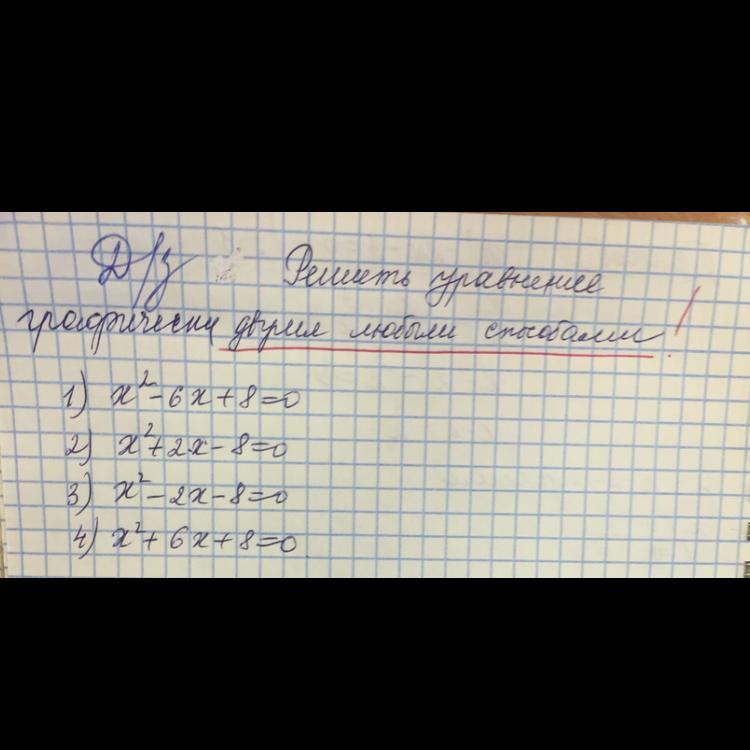 Д/з Решить уравнение
графически двумя любыми способами!
1) x² - 6x + 8 = 0
2) x² + 2x - 8 = 0
3) x² - 2x - 8 = 0
4) x² + 6x + 8 = 0